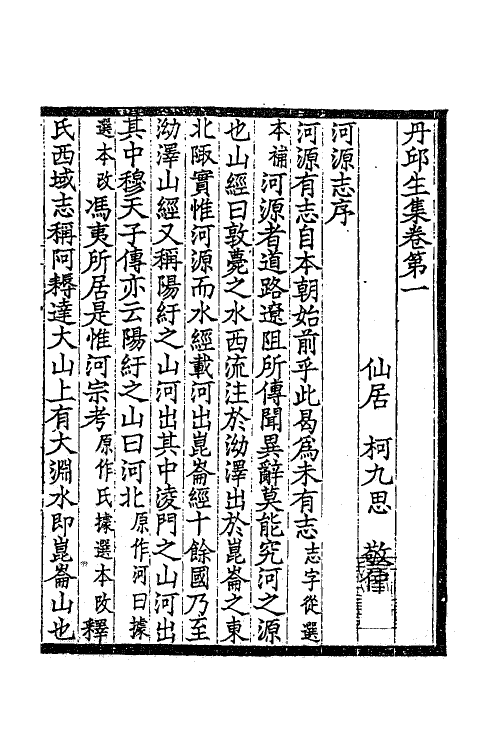 丹邱生集卷第一
仙居 柯九思 敬仲
河源志序
河源有志自本朝始前乎此曷爲未有志志字從選
本補河源者道路遼阻所傳聞異辭莫能究河之源
也山經曰敦薨之水西流注於泑澤出於崑崙之東
北陬實惟河源而水經載河出崑崙經十餘國乃至
泑澤山經又稱陽紆之山河出其中淩門之山河出
其中穆天子傳亦云陽紆之山曰河北原作河曰據
選本改馮夷所居是惟河宗考原作氏據選本改釋
氏西域志稱阿耨達大山上有大淵水即崑崙山也